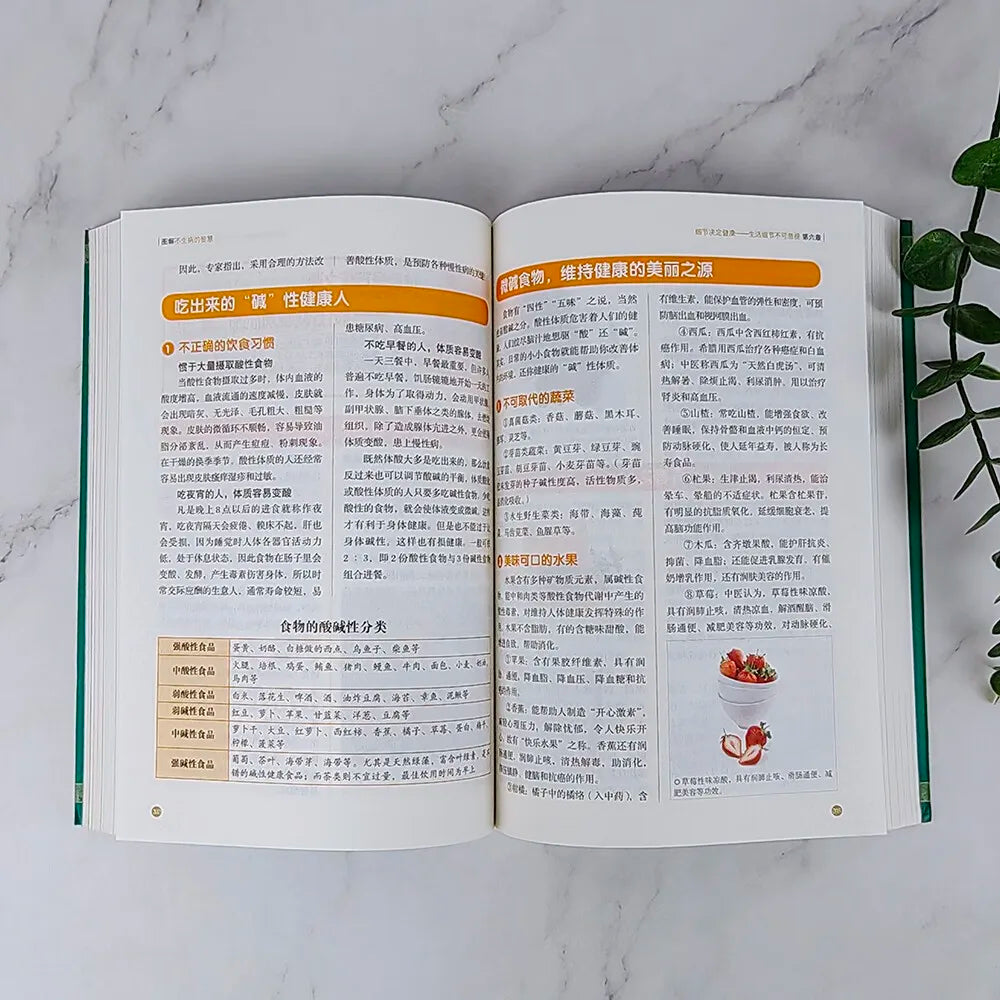 图解不生病的智慧
因此，专家指出，采用合理的方法改
善酸性体质，是预防各种慢性病的关键
吃出来的“碱”性健康人
1 不正确的饮食习惯
惯于大量摄取酸性食物
当酸性食物摄取过多时，体内血液的
酸度增高，血液流通的速度减慢，皮肤就
会出现暗灰、无光泽、毛孔粗大、粗糙等
现象。皮肤的微循环不顺畅，容易导致油
脂分泌紊乱，从而产生痘痘、粉刺现象。
在干燥的换季季节。酸性体质的人还经常
容易出现皮肤瘙痒湿疹和过敏。
吃夜宵的人，体质容易变酸
凡是晚上8点以后的进食就称作夜
宵，吃夜宵隔天会疲倦、赖床不起，肝也
会受损，因为睡觉时人体各器官活动力
低，处于休息状态，因此食物在肠子里会
变酸、发酵，产生毒素伤害身体，所以时
常交际应酬的生意人，通常寿命较短，易
患糖尿病、高血压。
不吃早餐的人，体质容易变酸
一天三餐中，早餐最重要，但许多人
普遍不吃早餐，饥肠辘辘地开始一天的工
作，身体为了取得动力，会动用甲状腺、
副甲状腺、脑下垂体之类的腺体，去燃烧
组织，除了造成腺体亢进之外，更会使得
体质变酸，患上慢性病。
既然体酸大多是吃出来的，那么饮食
反过来也可以调节酸碱的平衡，体质酸性
或酸性质的人只要多吃碱性食物，少吃
酸性的食物，就会使体液变成微碱，这样
才有利于身体健康。但是也不能过于让
身体碱性，这样也有损健康，一般可按
2：3，即2份酸性食物与3份碱性食物
组合进餐。
食物的酸碱性分类
强酸性食品 蛋黄、奶酪、白糖做的西点、乌鱼子、柴鱼等
中酸性食品 火腿、培根、鸡蛋、鲔鱼、猪肉、鳗鱼、牛肉、面包、小麦、奶油、
马肉等
弱酸性食品 白米、落花生、啤酒、酒、油炸豆腐、海苔、章鱼、泥鳅等
弱碱性食品 红豆、萝卜、苹果、甘蓝菜、洋葱、豆腐等
中碱性食品 萝卜干、大豆、红萝卜、西红柿、香蕉、橘子、草莓、蛋白、梅干、
柠檬、菠菜等
强碱性食品 葡萄、茶叶、海带芽、海带等。尤其是天然绿藻，富含叶绿素，是不
错的碱性健康食品；而茶类则不宜过量，最佳饮用时间为早上
细节决定健康——生活细节不可忽视 第六章
微碱食物，维持健康的美丽之源
食物有“四性”“五味”之说，当然
也有酸碱之分。酸性体质危害着人们的健
康，人们绞尽脑汁地想驱“酸”还“碱”。
其实，日常的小小食物就能帮助你改善体
内的环境，还你健康的“碱”性体质。
1 不可取代的蔬菜
①真菌菇类：香菇、蘑菇、黑木耳、
灵芝等。
②芽苗类蔬菜：黄豆芽、绿豆芽、豌
豆苗、胡豆芽苗、小麦芽苗等。（芽苗
发芽的种子碱性度高，活性物质多，
吸收。）
③水生野生菜类：海带、海藻、莼
菜、马齿苋菜、鱼腥草等。
美味可口的水果
水果含有多种矿物质元素，属碱性食
物，能中和肉类等酸性食物代谢中产生的
酸性毒素，对维持人体健康发挥特殊的作
用。水果不含脂肪，有的含糖味甜酸，能
增进食欲，帮助消化。
①苹果：含有果胶纤维素，具有润
肠、通便，降血脂、降血压、降血糖和抗
癌的作用。
②香蕉：能帮助人制造“开心激素”，
减轻心理压力，解除忧郁，令人快乐开
心，故有“快乐水果”之称。香蕉还有润
肠通便，润肺止咳，清热解毒，助消化，
健脑和抗癌的作用。
③柑橘：橘子中的橘络（入中药），含
有维生素，能保护血管的弹性和密度，可预
防脑出血和视网膜出血。
④西瓜：西瓜中含西红柿红素，有抗
癌作用。希腊用西瓜治疗各种癌症和白血
病；中医称西瓜为“天然白虎汤”，可清
热解暑、除烦止渴、利尿消肿，用以治疗
肾炎和高血压。
⑤山楂：常吃山楂，能增强食欲、改
善睡眠，保持骨骼和血液中钙的恒定、预
防动脉硬化、使人延年益寿，被人称为长
寿食品。
⑥杧果：生津止渴、利尿清热，能治
晕车、晕船的不适症状。杧果含杧果苷，
有明显的抗脂质氧化，延缓细胞衰老，提
高脑功能作用。
⑦木瓜：含齐墩果酸，能护肝抗炎、
抑菌、降血脂；还能促进乳腺发育，有催
奶增乳作用，还有润肤美容的作用。
⑧草莓：中医认为，草莓性味凉酸，
具有润肺止咳，清热凉血，解酒醒脑、滑
肠通便、减肥美容等功效，对动脉硬化、
草莓性味凉酸，具有润肺止咳、滑肠通便、减
肥美容等功效。